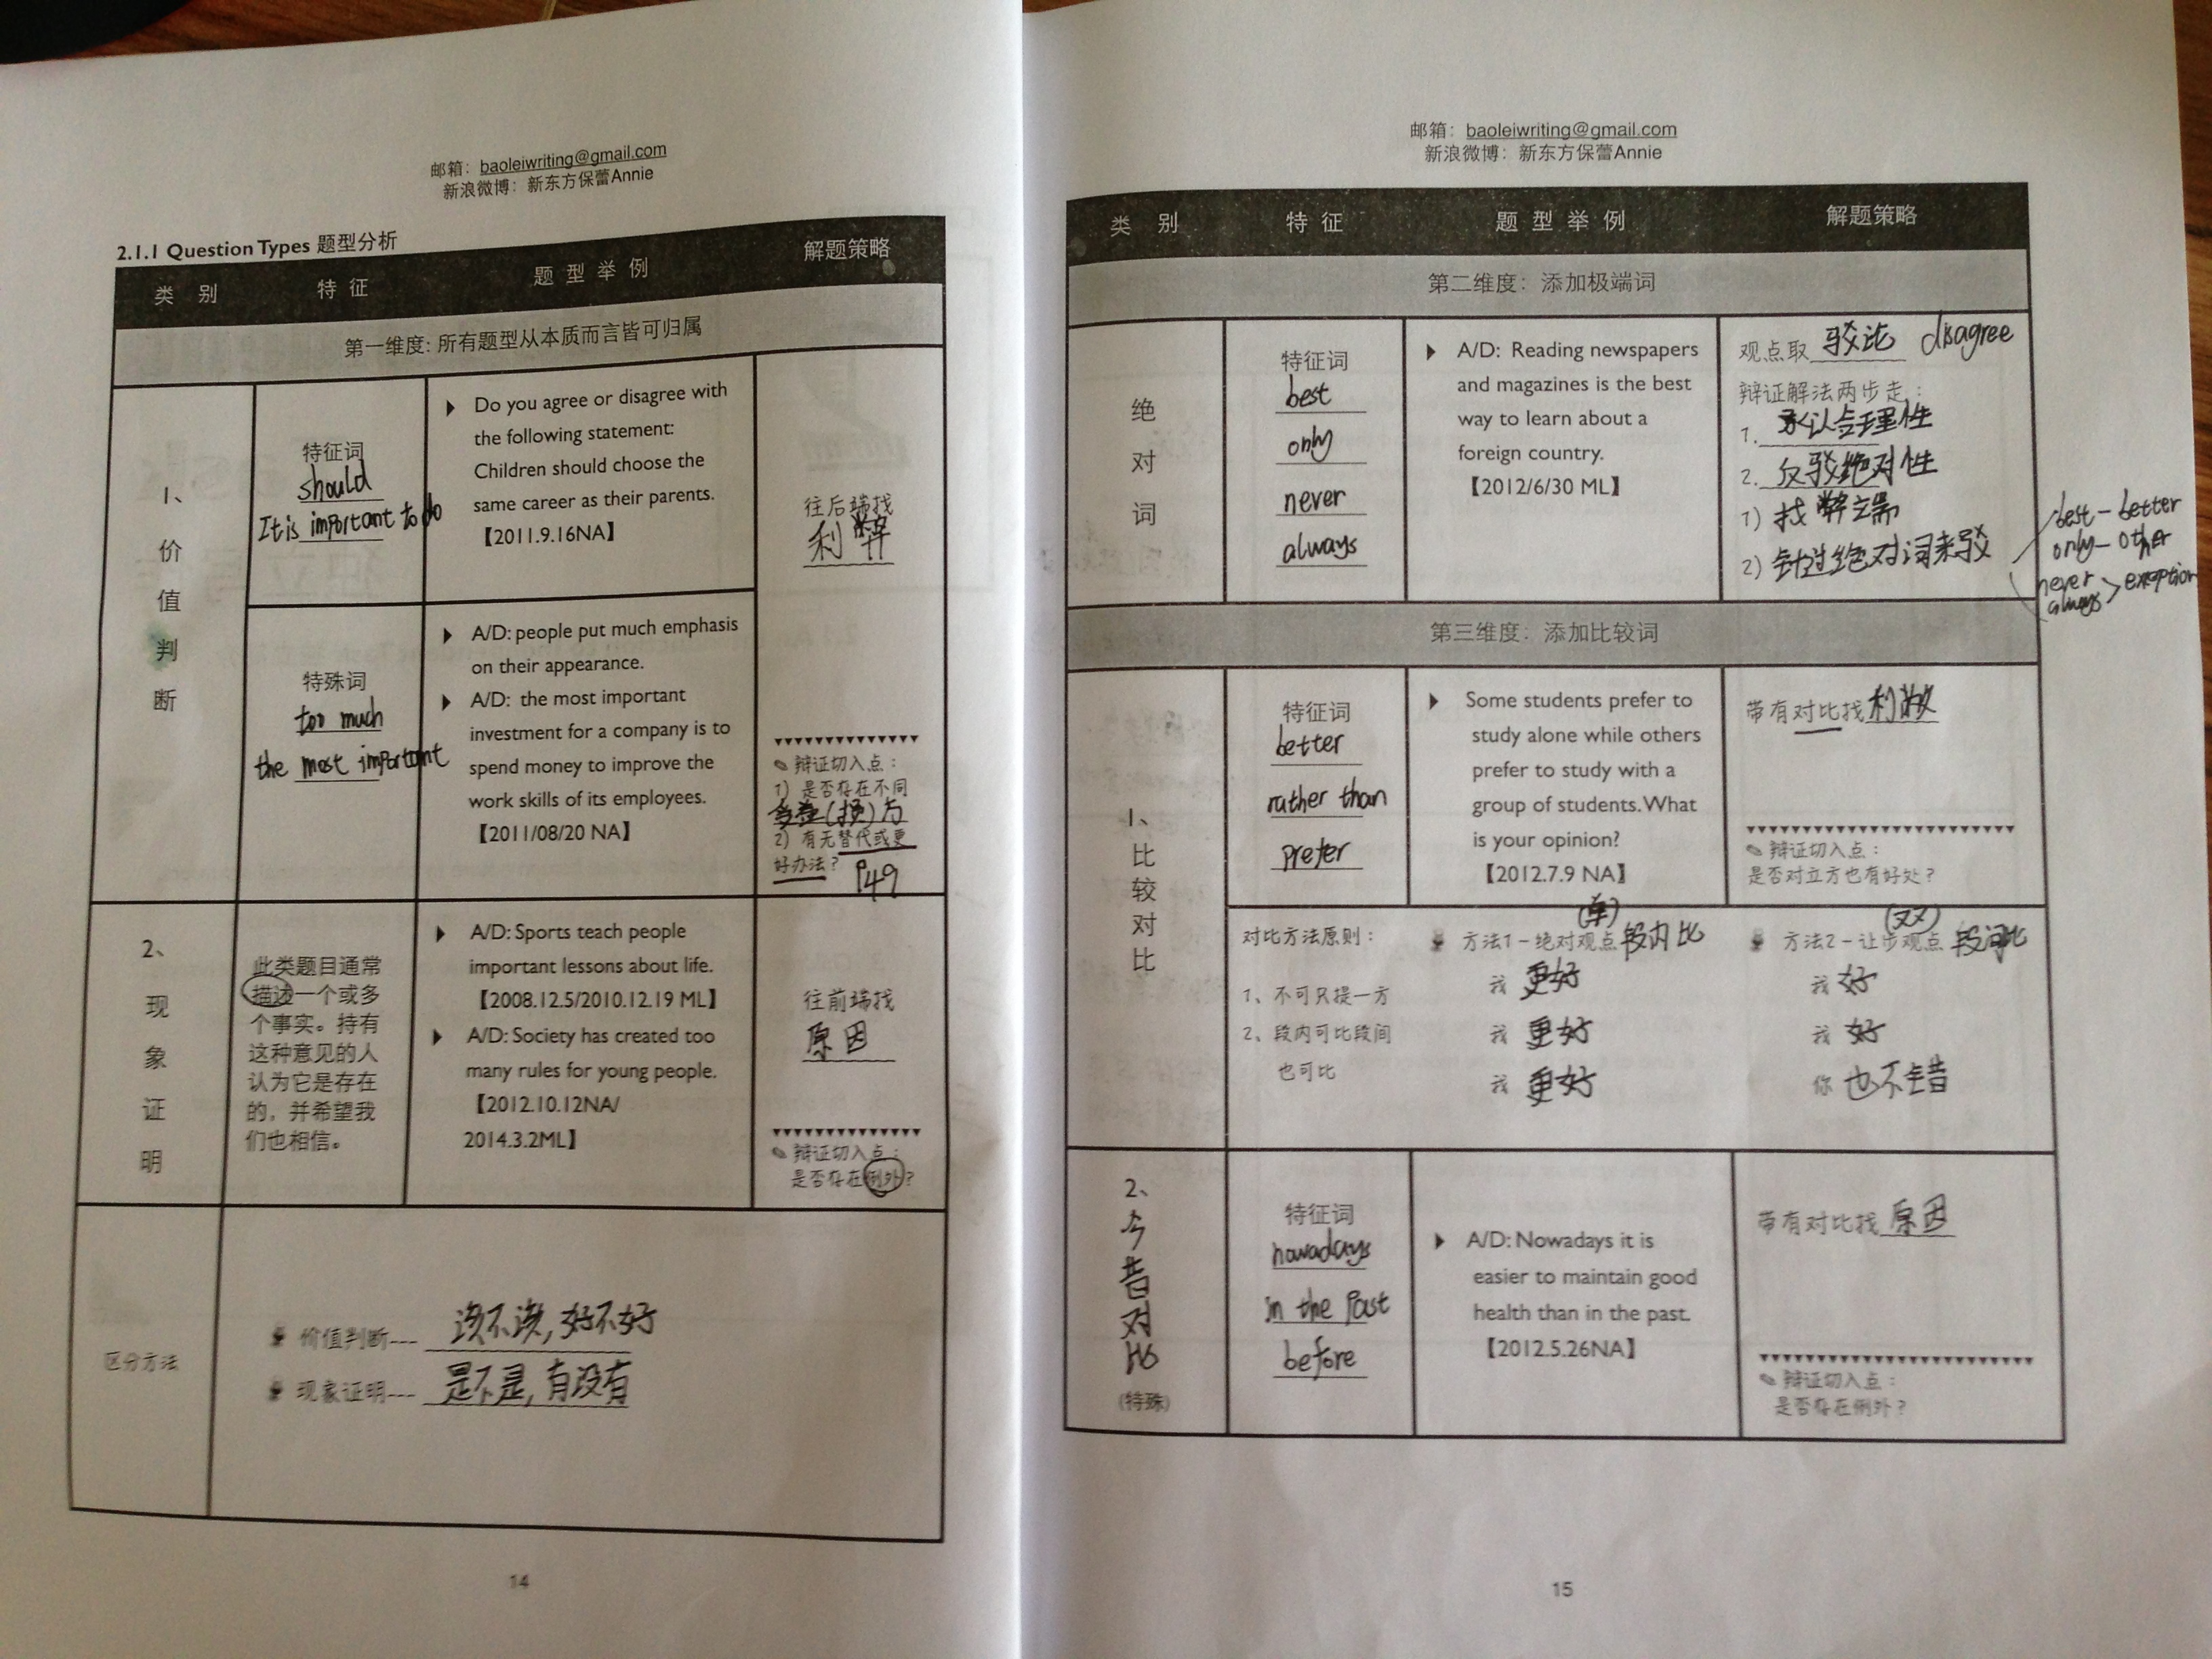 邮箱：baoleiwriting@gmail.com
新浪微博：新东方保蕾Annie
2.1.1 Question Types 题型分析
类 别 特 征 题 型 举 例 解题策略
第一维度：所有题型从本质而言皆可归属
1、
价
值
判
断
特征词
should
It is important to do
Do you agree or disagree with
the following statement:
Children should choose the
same career as their parents.
【2011.9.16NA】
往后端找
利 弊
特殊词
too much
the most important
A/D: people put much emphasis
on their appearance.
A/D: the most important
investment for a company is to
spend money to improve the
work skills of its employees.
【2011/08/20 NA】
辩证切入点：
1）是否存在不同
2）有无替代或更
好办法？
P49
2、
现
象
证
明
此类题目通常
描述一个或多
个事实。持有
这种意见的人
认为它是存在
的，并希望我
们也相信。
A/D: Sports teach people
important lessons about life.
【2008.12.5/2010.12.19 ML】
A/D: Society has created too
many rules for young people.
【2012.10.12NA/
2014.3.2ML】
往前端找
原因
辩证切入点：
是否存在例外？
区分方法
价值判断---该不该，好不好
现象证明---是不是，有没有
14
邮箱：baoleiwriting@gmail.com
新浪微博：新东方保蕾Annie
类 别 特 征 题 型 举 例 解题策略
第二维度：添加极端词
绝
对
词
特征词
best
only
never
always
A/D: Reading newspapers
and magazines is the best
way to learn about a
foreign country.
【2012/6/30 ML】
观点取 驳论 disagree
辩证解法两步走：
1. 承认合理性
2. 反驳绝对性
1）找弊端
2）针对绝对词来驳
best - better
only - other
never
always > exception
第三维度：添加比较词
1、
比
较
对
比
特征词
better
rather than
prefer
Some students prefer to
study alone while others
prefer to study with a
group of students. What
is your opinion?
【2012.7.9 NA】
带有对比找利弊
辩证切入点：
是否对立方也有好处？
对比方法原则：
1、不可只提一方
2、段内可比段间
也可比
方法1－绝对观点 (单) 段内比
我 更好
我 更好
我 更好
方法2－让步观点 (双) 段间比
我 好
我 好
你 也不错
2、
今
昔
对
比
(特殊)
特征词
nowadays
in the past
before
A/D: Nowadays it is
easier to maintain good
health than in the past.
【2012.5.26NA】
带有对比找 原因
辩证切入点：
是否存在例外？
15